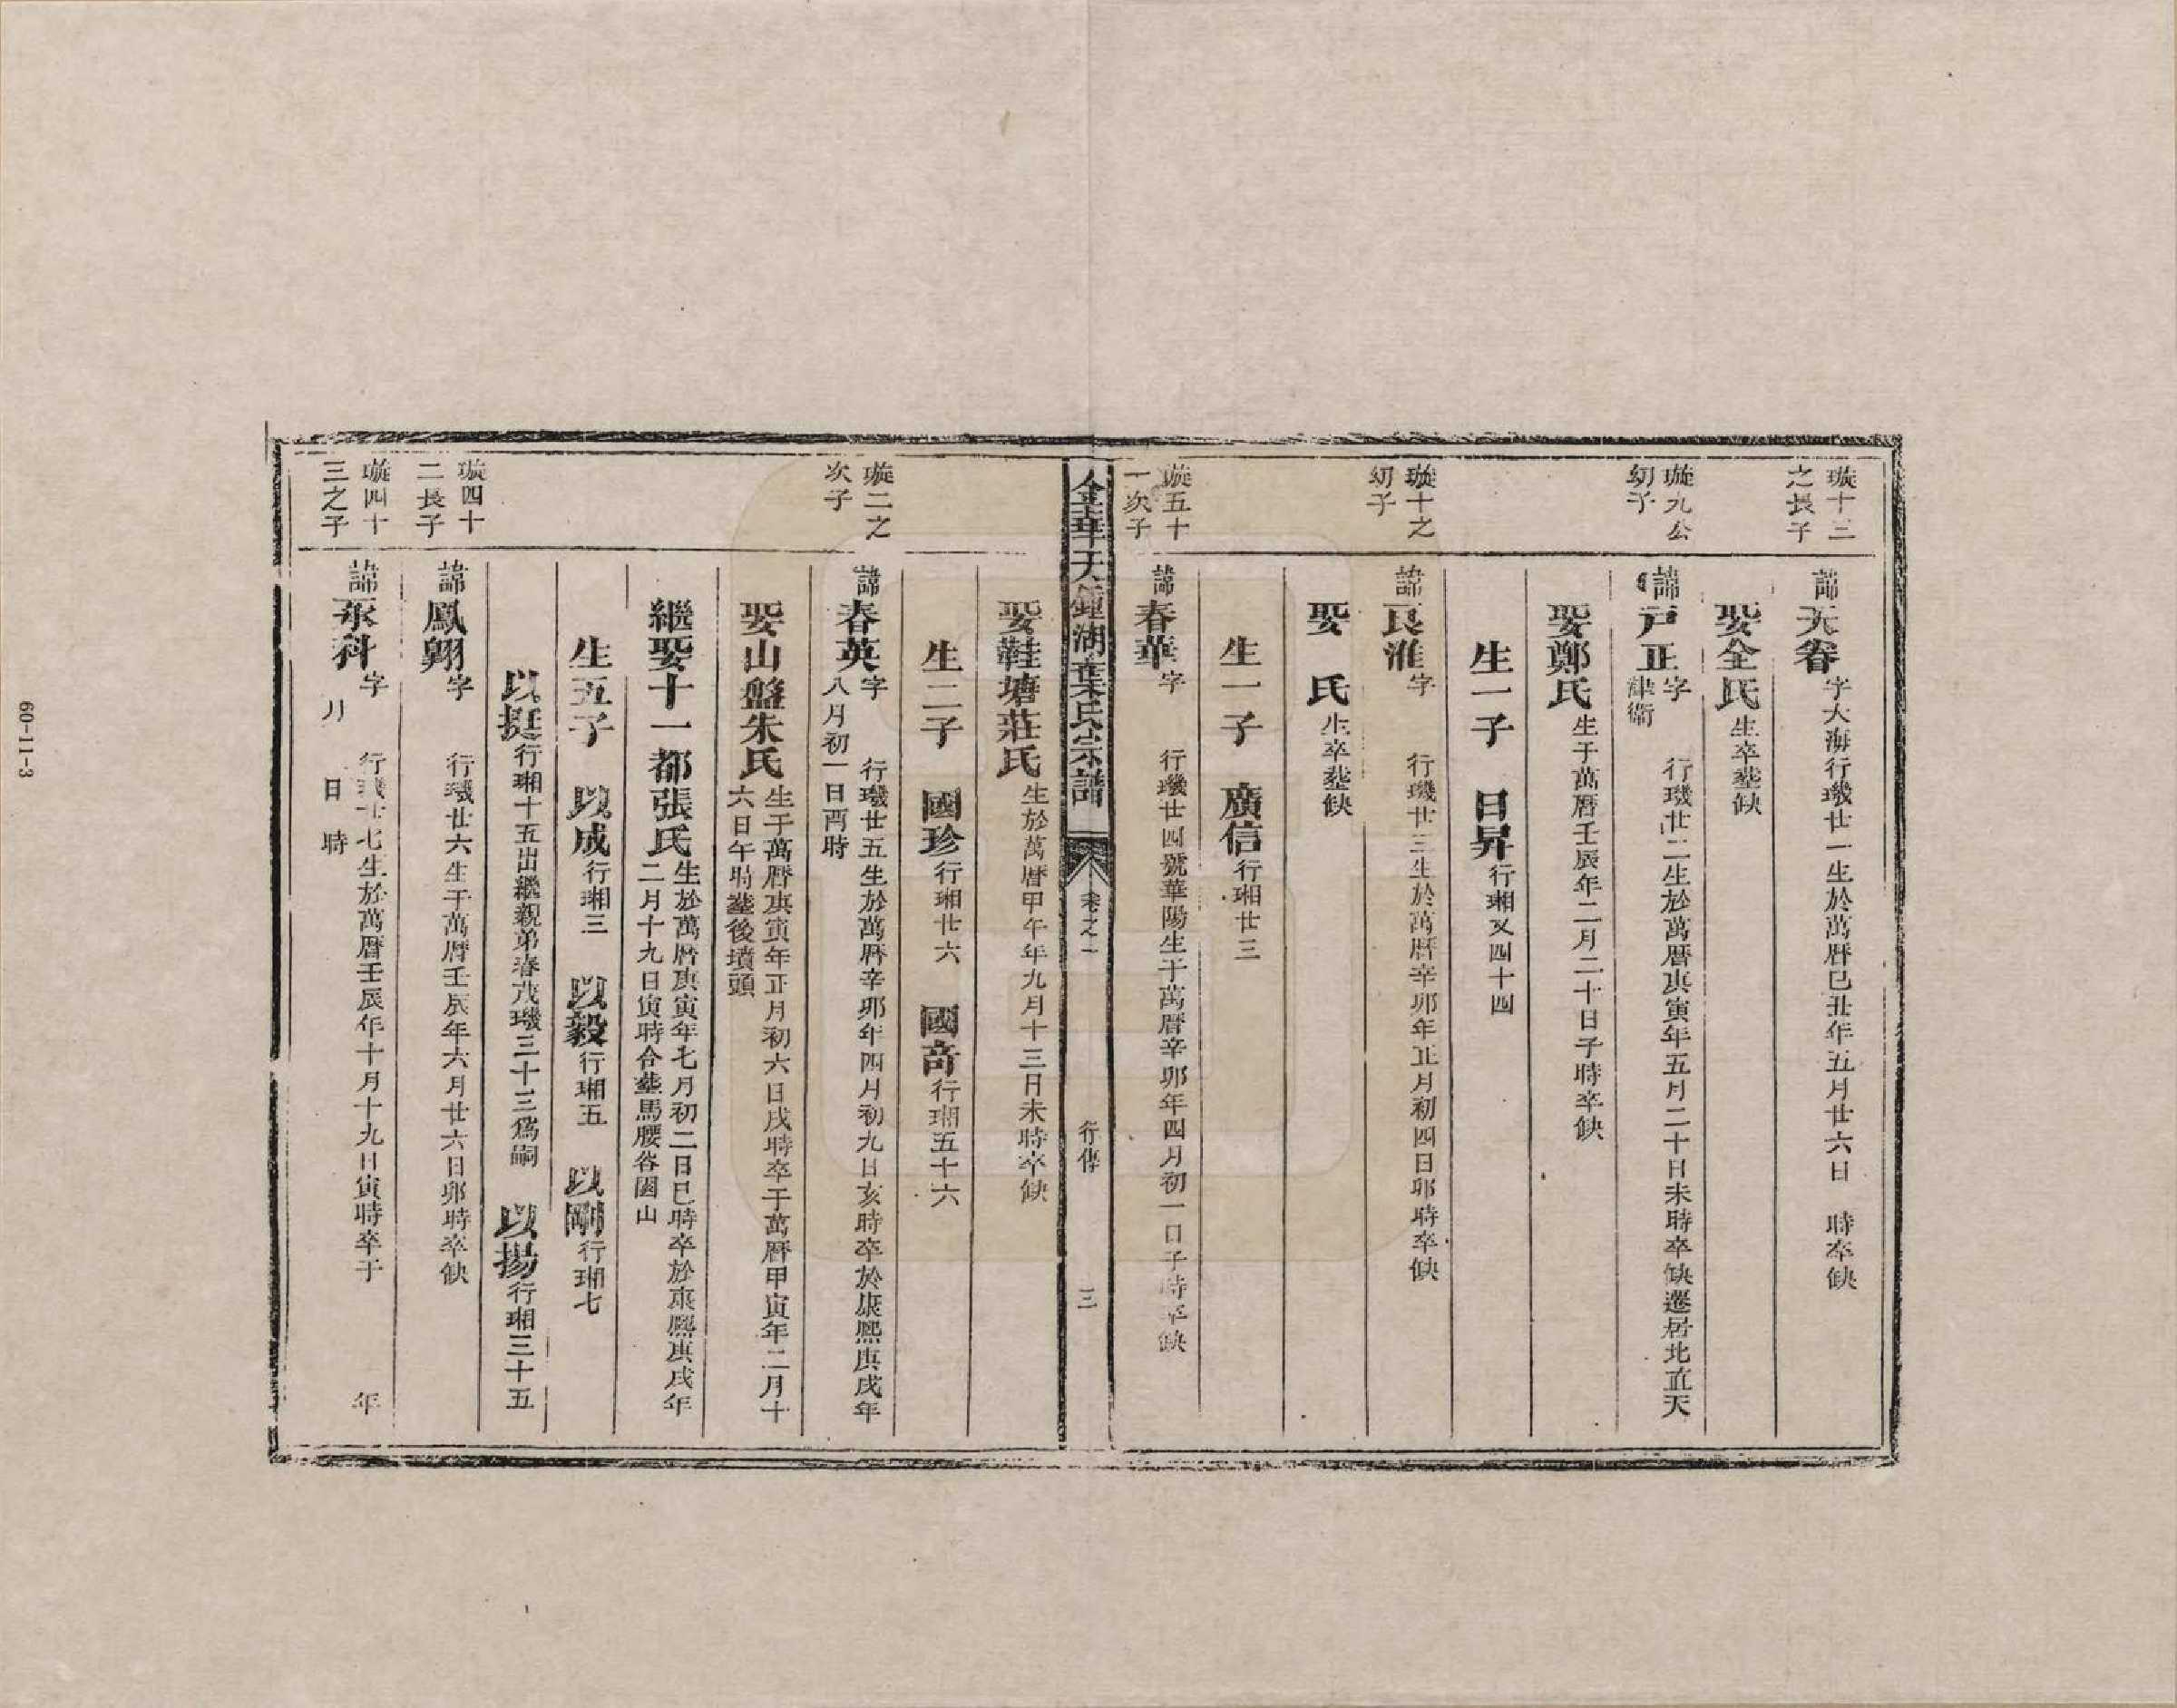 璇十三
之長子
諱天眷
字大海行璣廿一生於萬曆己丑年五月廿六日 時卒缺
娶全氏
生卒塟缺
璇九公
幼子
諱戸正
字 行璣廿二生於萬曆庚寅年五月二十日未時卒缺遷居北直天
津衛
娶鄭氏
生于萬曆壬辰年二月二十日子時卒缺
生一子 日昇
行瑚又四十四
璇十之
幼子
諱良淮
字 行璣廿三生於萬曆辛卯年正月初四日卯時卒缺
娶 氏
生卒塟缺
生一子 廣信
行瑚廿三
璇五十
一次子
諱春華
字 行璣廿四號華陽生于萬曆辛卯年四月初一日子時卒缺
金華天鍾湖葉氏宗譜
卷之一
行傳
三
娶鞋塘莊氏
生於萬曆甲午年九月十三日未時卒缺
生二子 國珍
行瑚廿六
國奇
行瑚五十六
璇二之
次子
諱春英
字 行璣廿五生於萬曆辛卯年四月初九日亥時卒於康熙庚戌年
八月初一日酉時
娶山盤朱氏
生于萬曆庚寅年正月初六日戌時卒于萬曆甲寅年二月十
六日午時塟後墳頭
繼娶十一都張氏
生於萬曆庚寅年七月初二日巳時卒於康熙庚戌年
二月十九日寅時合塟馬腰峉園山
生五子 以成
行瑚三
以毅
行瑚五
以剛
行瑚七
以挺
行瑚十五出繼親弟春茂璣三十三爲嗣
以揚
行瑚三十五
璇四十
二長子
諱鳳翔
字 行璣廿六生于萬曆壬辰年六月廿六日卯時卒缺
璇四十
三之子
諱永科
字 行璣廿七生於萬曆壬辰年十月十九日寅時卒于 年
月 日 時
60-11-3